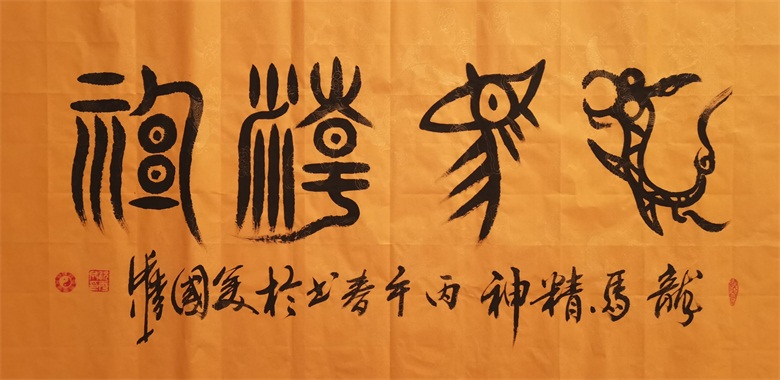 龍馬精神
龍馬精神 丙午春书於美國